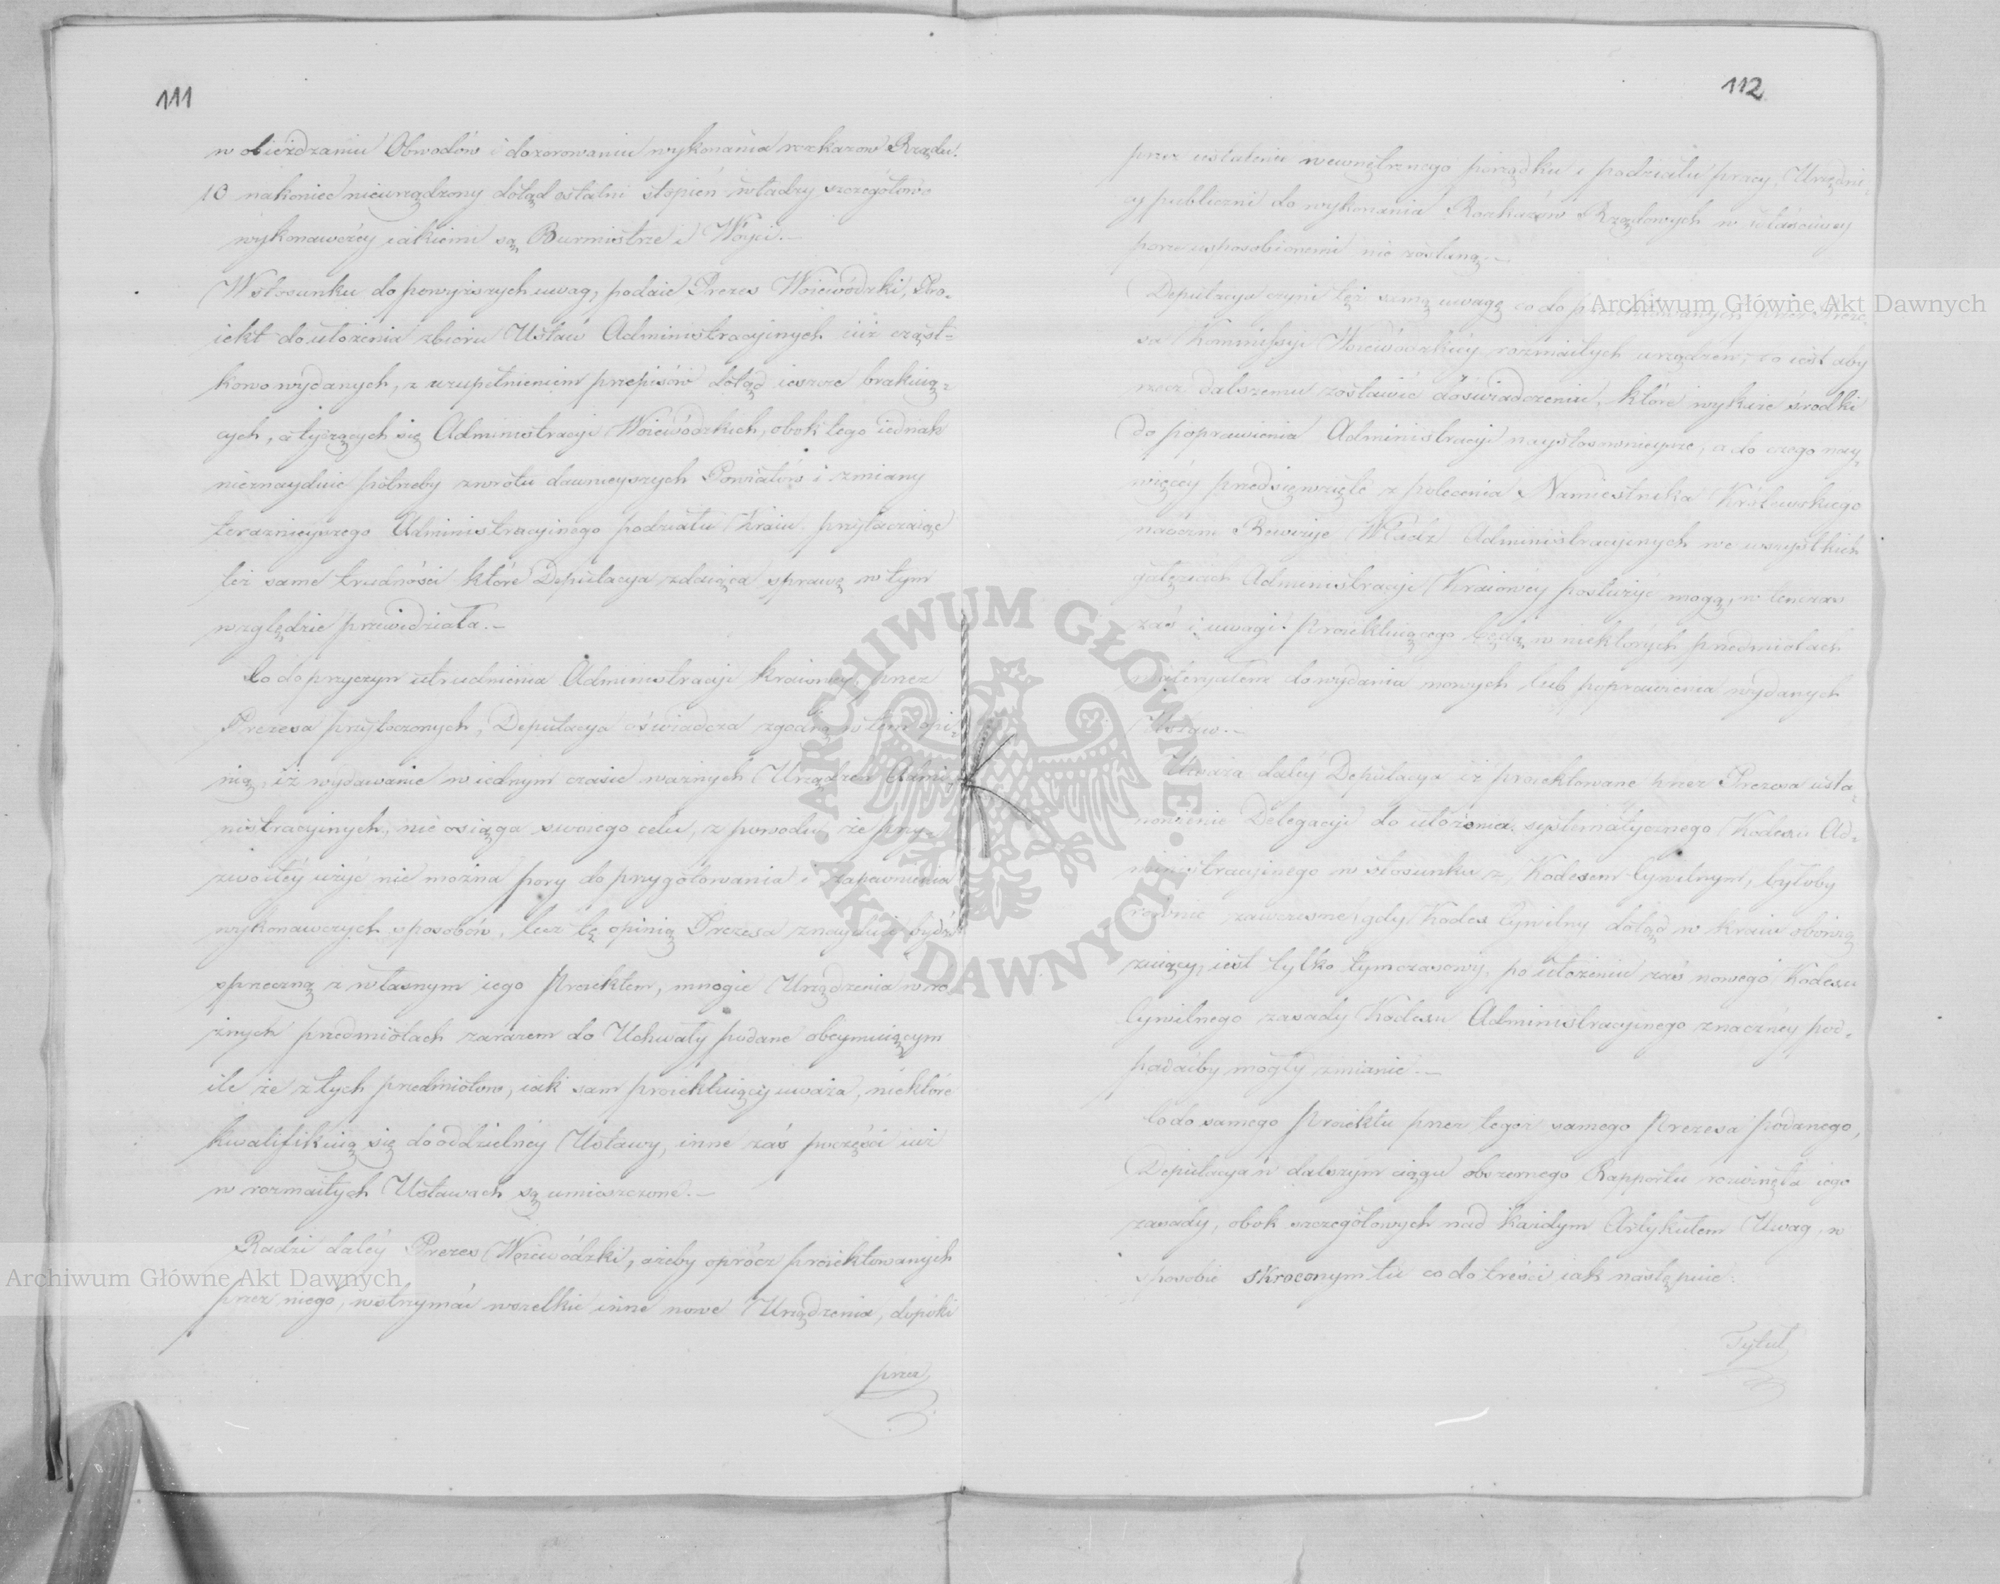 111
w obieżdzaniu Obwodów i dozorowaniu wykonania rozkazów Rządu.
10 nakoniec nieurządzony dotąd ostatni stopień władzy szczegółowo
wykonawczey iakiemi są Burmistrze i Wóyci.—
W stosunku do powyższych uwag, podaie Prezes Woiewódzki, Pro-
iekt do ułożenia zbioru Ustaw Administracyinych iuż cząst-
kowo wydanych, z uzupełnieniem przepisów dotąd ieszcze brakuią-
cych, a tyczących się Administracyi Woiewódzkich, obok tego iednak
nieznayduie potrzeby zwrotu dawnieyszych Powiatów i zmiany
teraznieyszego Administracyinego podziału Kraiu, przytaczaiąc
też same trudności które Deputacya zdaiąca sprawę w tym
względzie przewidziała.—
Co do przyczyn utrudnienia Administracyi kraiowey, przez
Prezesa przytoczonych, Deputacya oświadcza zgodną w tem opi-
nią, iż wydawanie w iednym czasie ważnych Urządzeń Admi-
nistracyinych, nie osiąga swoiego celu, z powodu, że przy-
zwoitey użyć nie można pory do przygotowania i zapewnienia
wykonawczych sposobów, lecz tę opinią Prezesa znayduie bydź
sprzeczną z własnym iego Proiektem, mnogie Urządzenia w ró-
żnych przedmiotach zarazem do Uchwały podane obeymuiącym
ile że z tych przedmiotów, iak sam proiektuiący uważa, niektóre
kwalifikuią się do oddzielney Ustawy, inne zaś poczęści iuż
w rozmaitych Ustawach są umieszczone.—
Radzi daley Prezes Woiewódzki, ażeby oprócz proiektowanych
przez niego, wstrzymać wszelkie inne nowe Urządzenia, dopóki
przez
112
przez ustalenie wewnętrznego porządku i podziału pracy, Urzędni-
cy publiczni do wykonania Rozkazów Rządowych w właściwey
porze usposobionemi nie zostaną.—
Deputacya czyni też samą uwagę co do przez Preze-
sa Kommissyi Woiewódzkiey rozmaitych urządzeń, to iest aby
rzecz dalszemu zostawić doświadczeniu, które wykaże środki
do poprawienia Administracyi naystosownieysze, a do czego nay-
więcey przedsięwzięte z polecenia Namiestnika Królewskiego
naoczne Rewizye Władz Administracyinych we wszystkich
gałęziach Administracyi Kraiowey posłużyć mogą, w tenczas
zaś i uwagi proiektuiącego będą w niektórych przedmiotach
materyałem do wydania nowych lub poprawienia wydanych
Ustaw.—
Uważa daley Deputacya iż proiektowane przez Prezesa usta-
nowienie Delegacyi do ułożenia systematycznego Kodexu Ad-
ministracyinego w stosunku z Kodexem Cywilnym, byłoby
równie zawczesne, gdy Kodex Cywilny dotąd w kraiu obowią
zuiący, iest tylko tymczasowy, po ułożeniu zaś nowego Kodexu
Cywilnego zasady Kodexu Administracyinego znaczney pod-
padaćby mogły zmianie.—
Co do samego Proiektu przez tegoż samego Prezesa podanego,
Deputacya w dalszym ciągu obszernego Rapportu rozwinęła iego
zasady, obok szczegółowych nad każdym Artykułem Uwag w
sposobie skróconym tu co do treści iak następuie:
Tytuł
Archiwum Główne Akt Dawnych
Archiwum Główne Akt Dawnych
· ARCHIWUM GŁÓWNE · AKT DAWNYCH ·